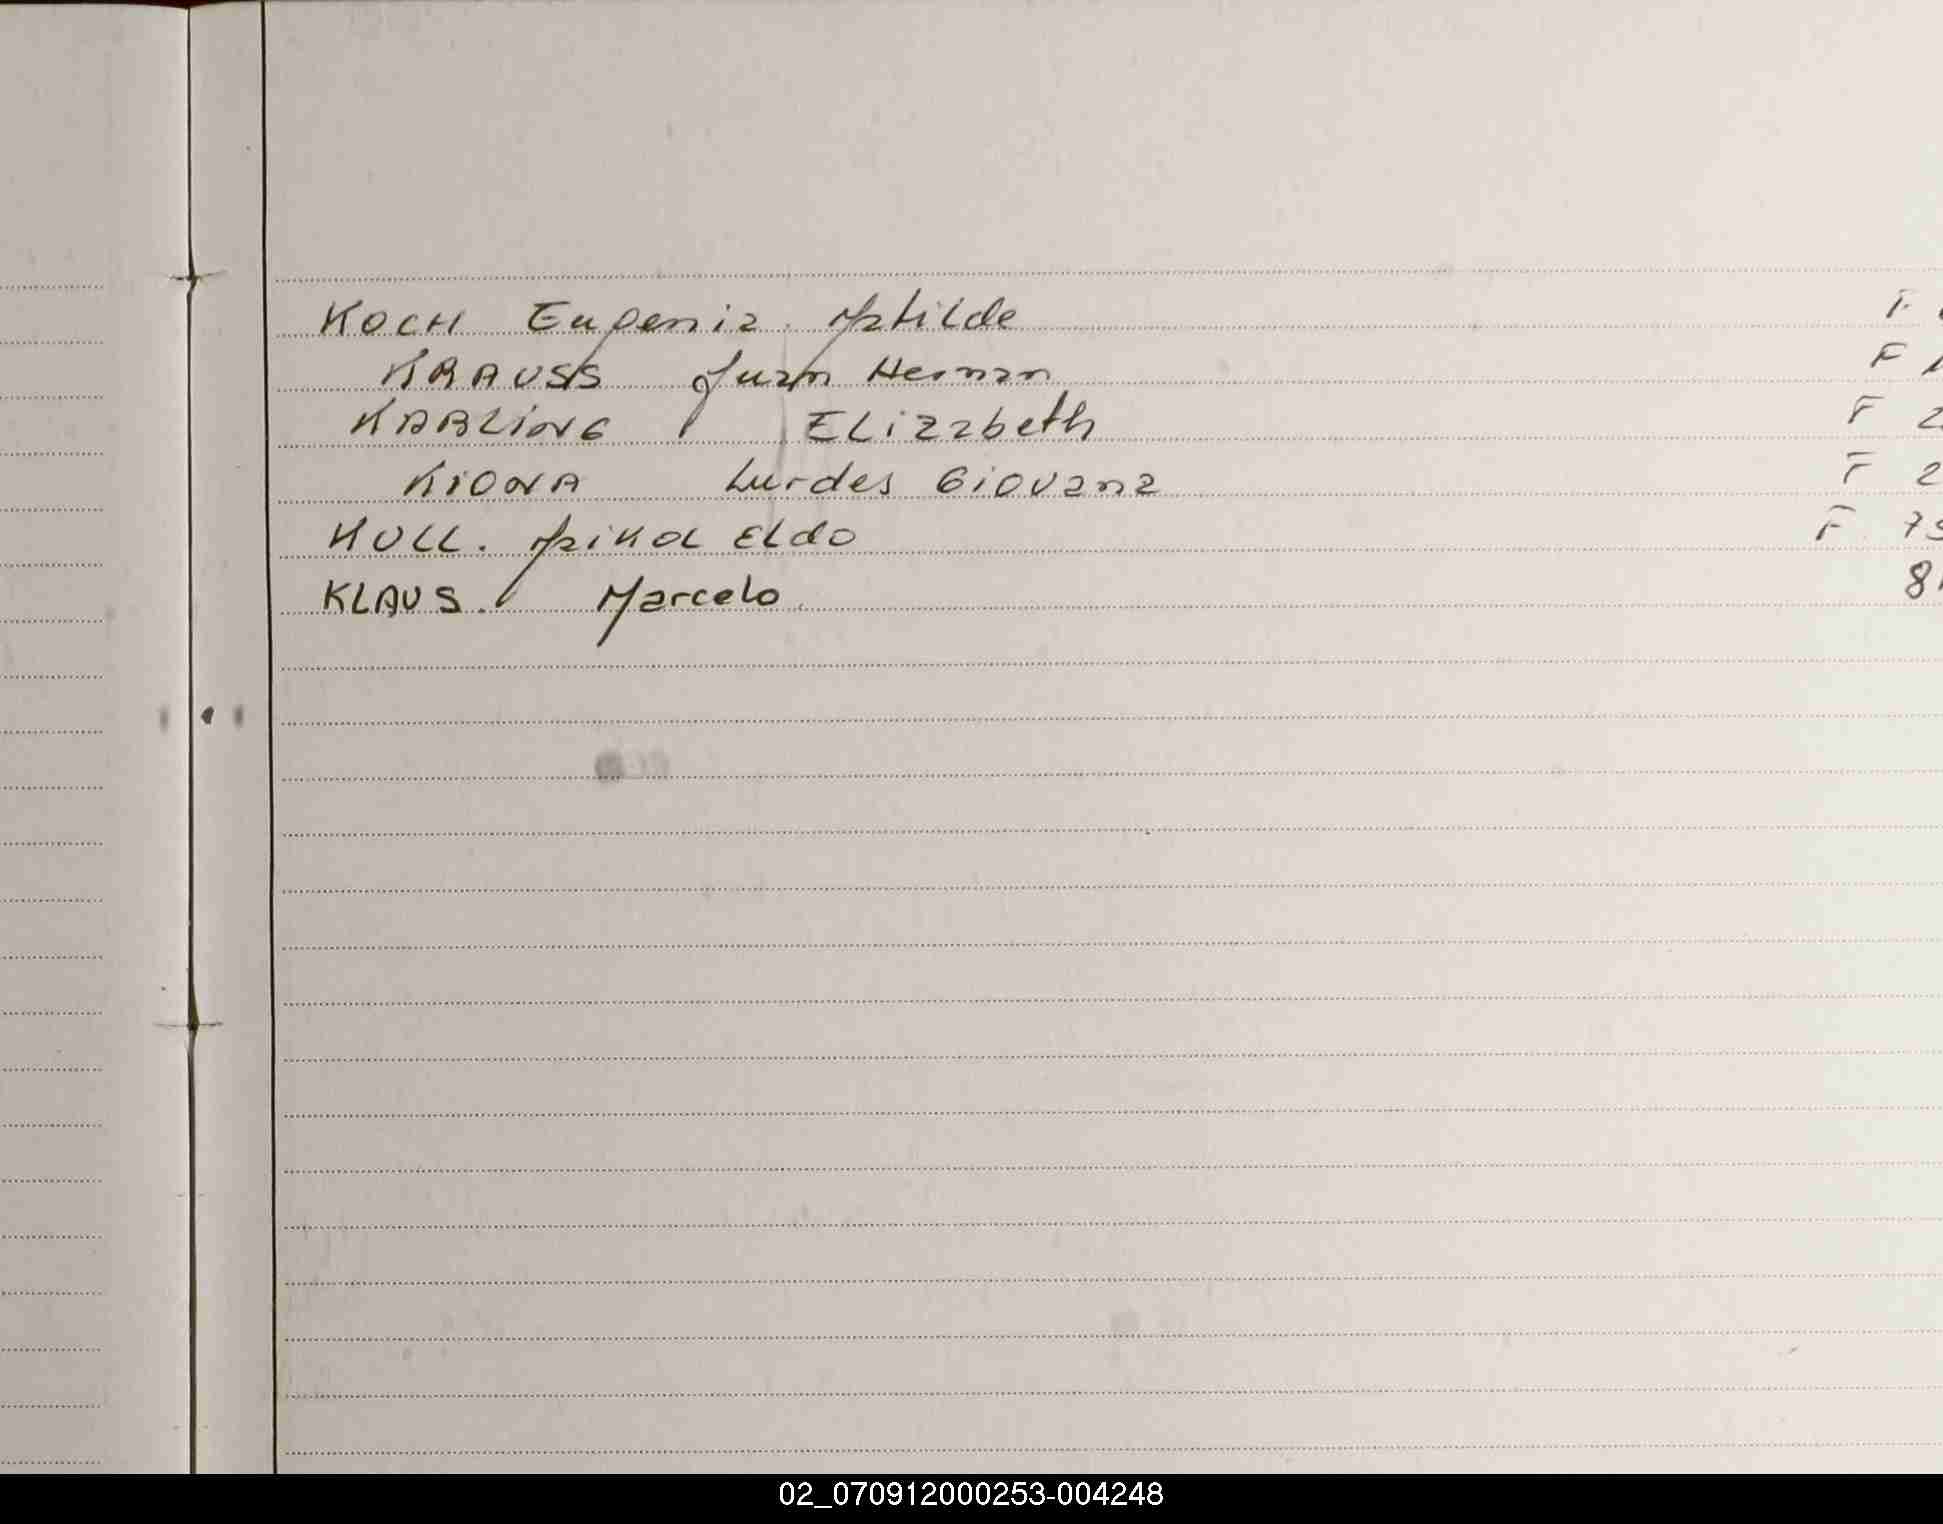 KOCH Eugenia Matilde F
KRAUSS Juan Hernan F
KARLING Elizabeth F 2
KIONA Lurdes Giovana F 2
KULL. Maikol Eldo F 75
KLAUS. Marcelo. 8
02_070912000253-004248